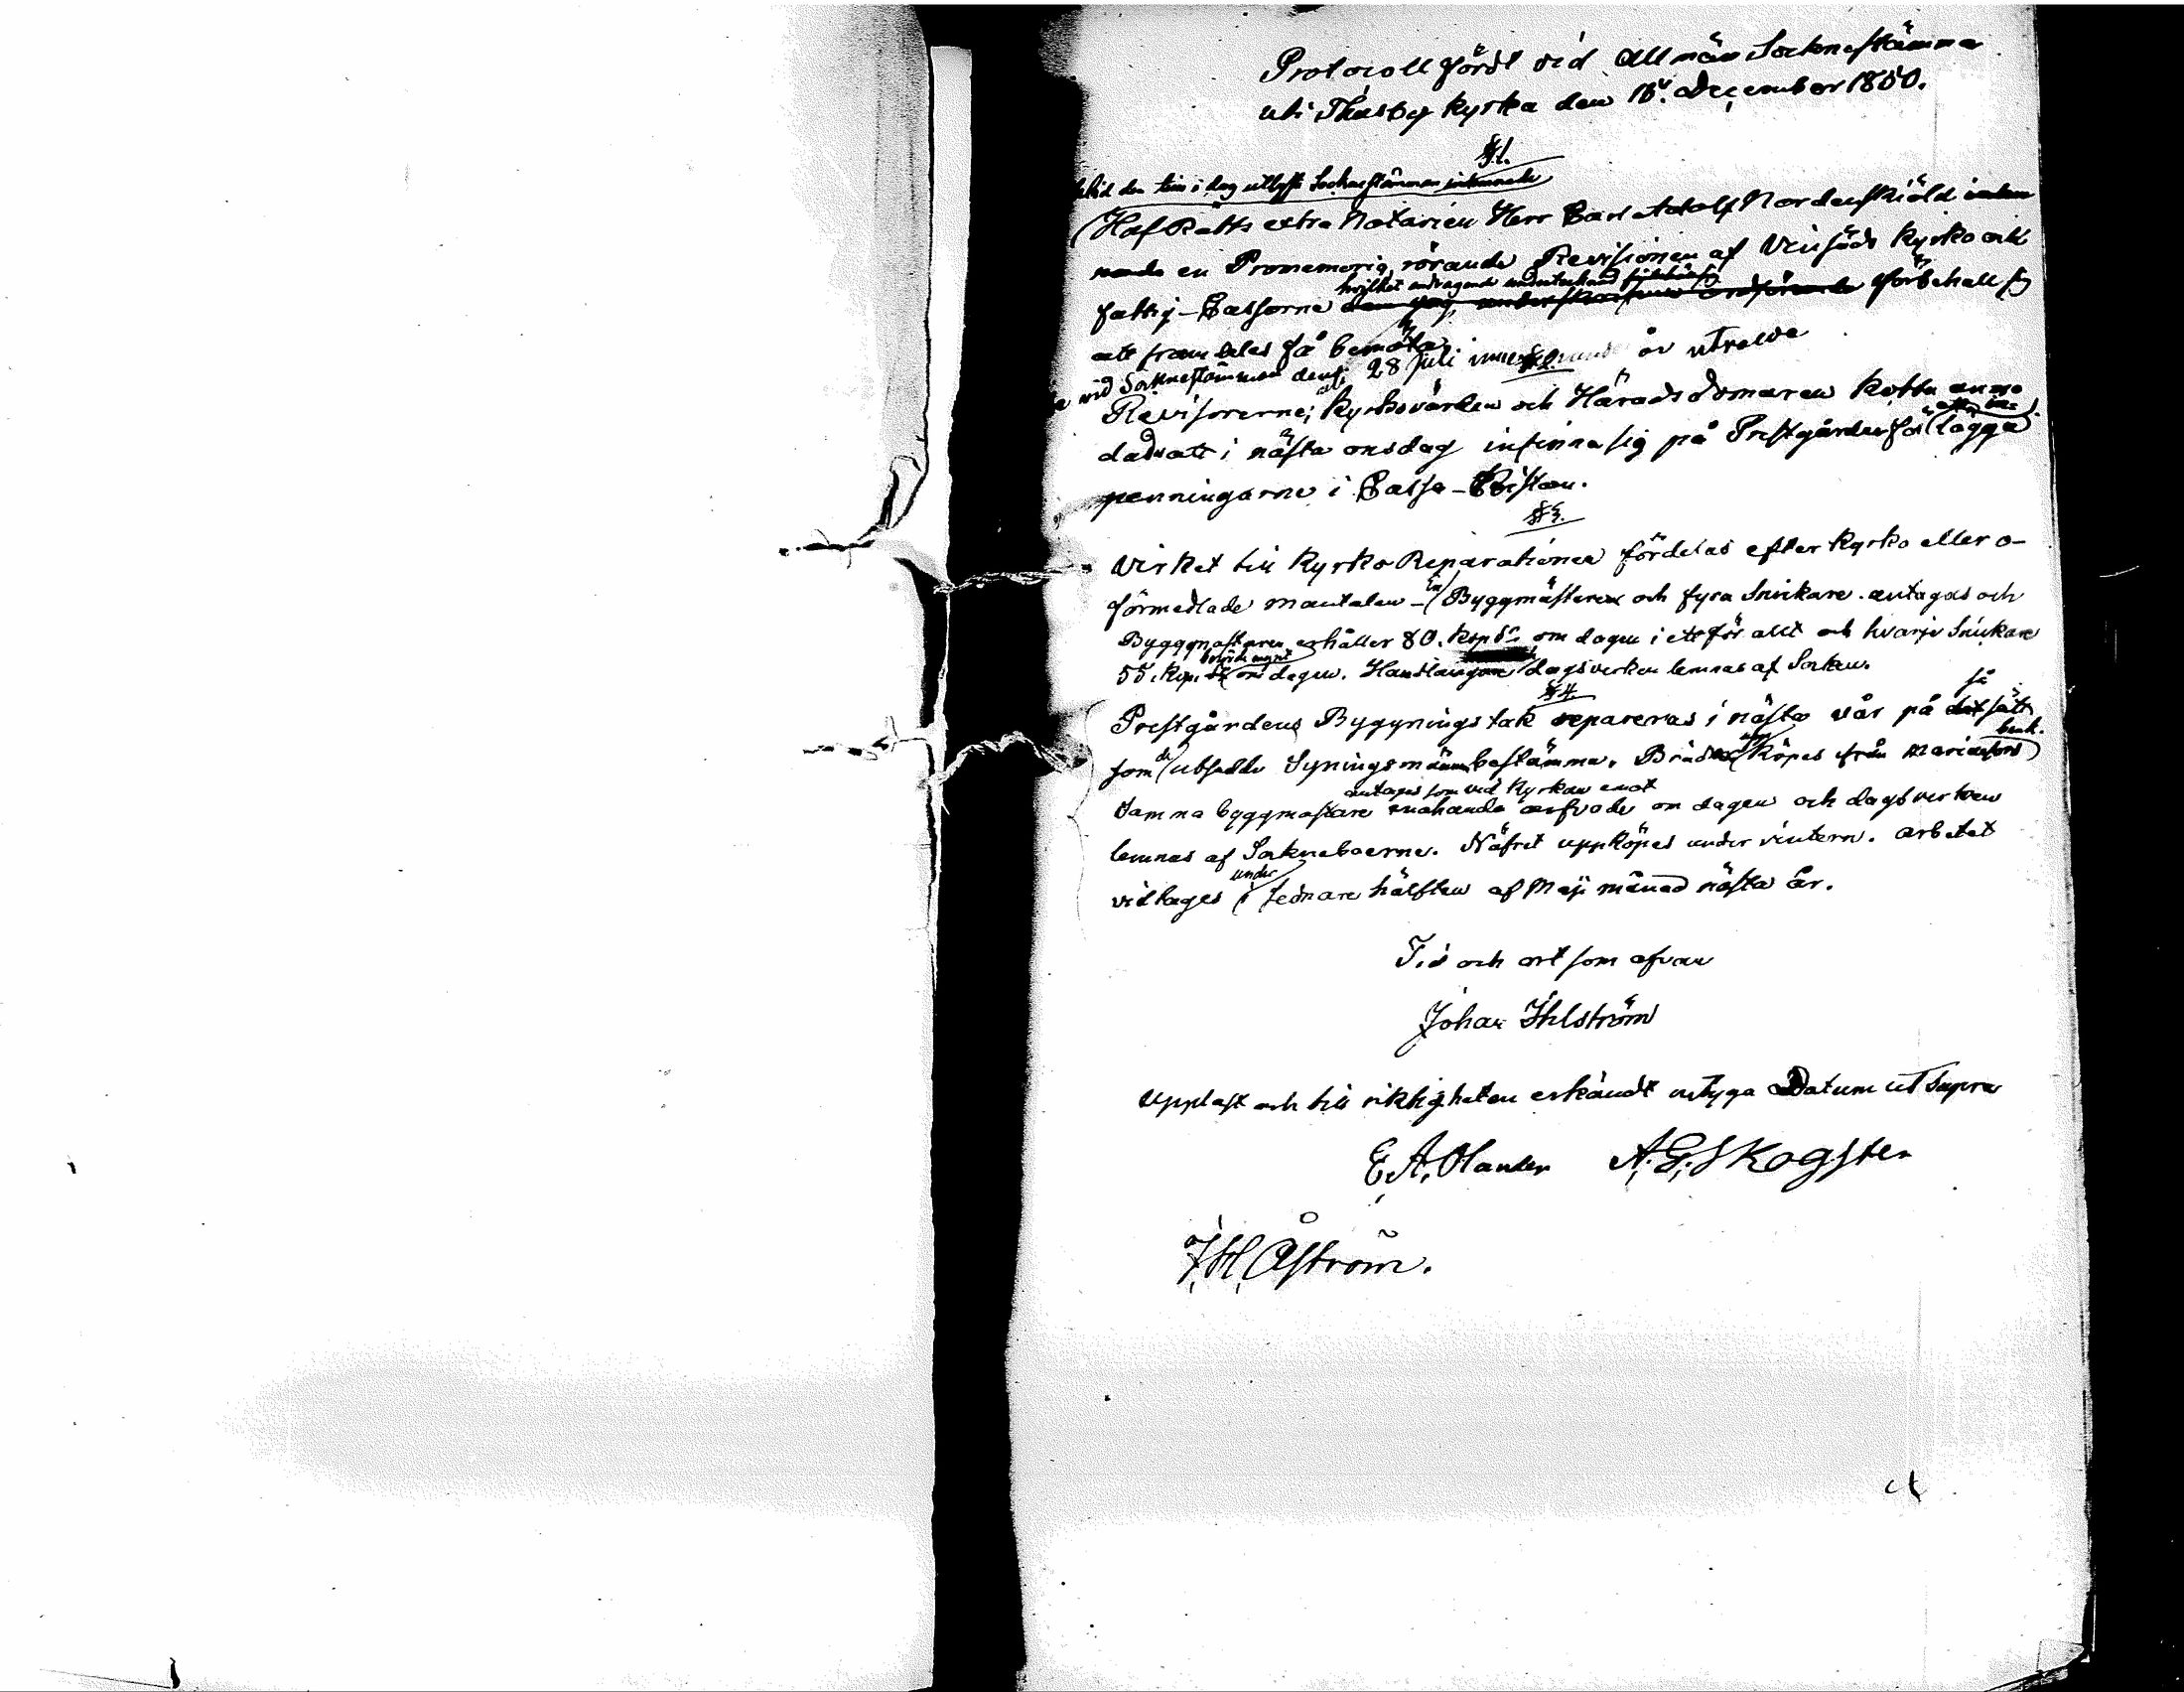 Protocoll fördt vid Allmän Socknestämma
uti Thusby Kyrka den 15. December 1850.
§1.
Vid den till i dag utlyste Sockne stämman inlemnade
HofRätts extra Notarien Herr Carl Adolf Nordenskiöld inlem
nade en Promemoria rörande Revisionen af kyrko och
hvilket undertecknad
fattig-Cassorne förbehåll sig
att framdeles få bemöta.
§2.
vid Sockne stämman den 28 Juli år utvalde
Revisorerne, Kyrkovärden och Häradsdomaren anmo
dades att i nästa onsdag infinna sig på Prestgården för lägga
penningarne i Cassa-Kistan.
§3.
Virket till Kyrko Reparationen fördelas efter Kyrko eller o-
förmedlade mantalen - En Byggmästare och fyra Snickare antagas och
Byggmästaren erhåller 80. Kop. Sr om dagen i ett för allt och hvarje Snickare
55. Kop. Sr om dagen. Handlangare dagsverken lemnas af Socken.
§4.
så
Prestgårdens Byggnings tak repareras i nästa vår på det sätt
bruk.
som de utsedde Syningsmän bestämma. Bräder köpes från Mariefors
antages som vid Kyrkan emot
Samma byggmästare enahanda arfvode om dagen och dagsverken
lemnas af Sockneboerne. Näfret uppköpes under vintern. Arbetet
under
vidtages i sednare hälften af Maji månad nästa år.
Tid och ort som ofvan
Johan Ihlström
Uppläst och till riktigheten erkändt intyga Datum ut Supra
E. A. Olander A. G. Skogster
J. H. Åström.